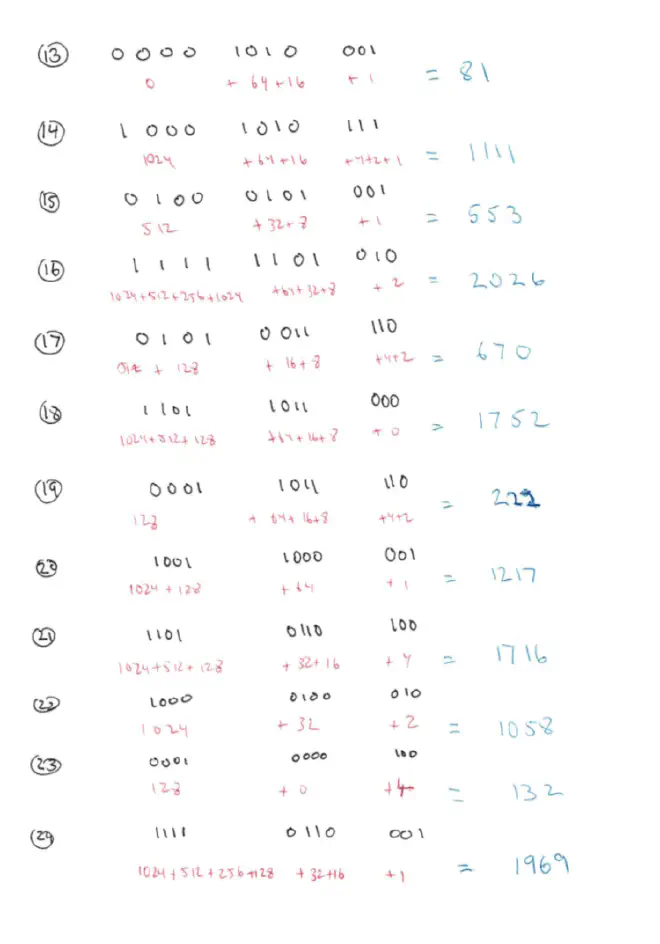 13 0000 1010 001
0 + 64+16 + 1 = 81
14 1000 1010 111
1024 +64+16 +4+2+1 = 1111
15 0100 0101 001
512 +32+8 +1 = 553
16 1111 1101 010
1024+512+256+1024 +64+32+8 +2 = 2026
17 0101 0011 110
512 + 128 + 16+8 +4+2 = 670
18 1101 1011 000
1024+512+128 +64+16+8 +0 = 1752
19 0001 1011 110
128 + 64+16+8 +4+2 = 222
20 1001 1000 001
1024 + 128 + 64 + 1 = 1217
21 1101 0110 100
1024+512+128 + 32+16 + 4 = 1716
22 1000 0100 010
1024 + 32 +2 = 1058
23 0001 0000 100
128 + 0 +4 = 132
24 1111 0110 001
1024+512+256+128 +32+16 +1 = 1969